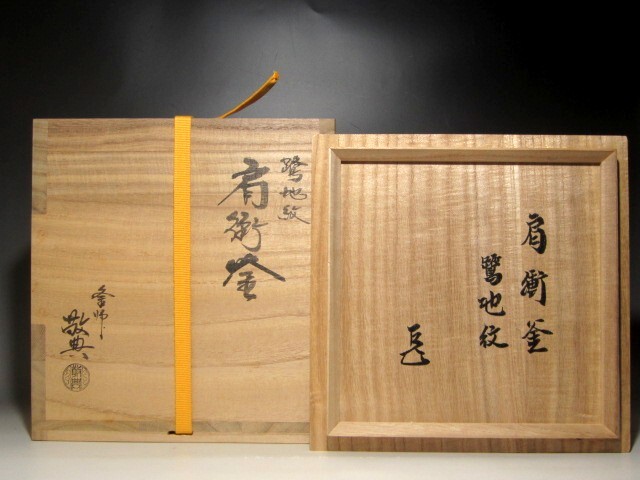 鷺地紋
肩衝釜
釜師
敬典
肩衝釜
鷺地紋